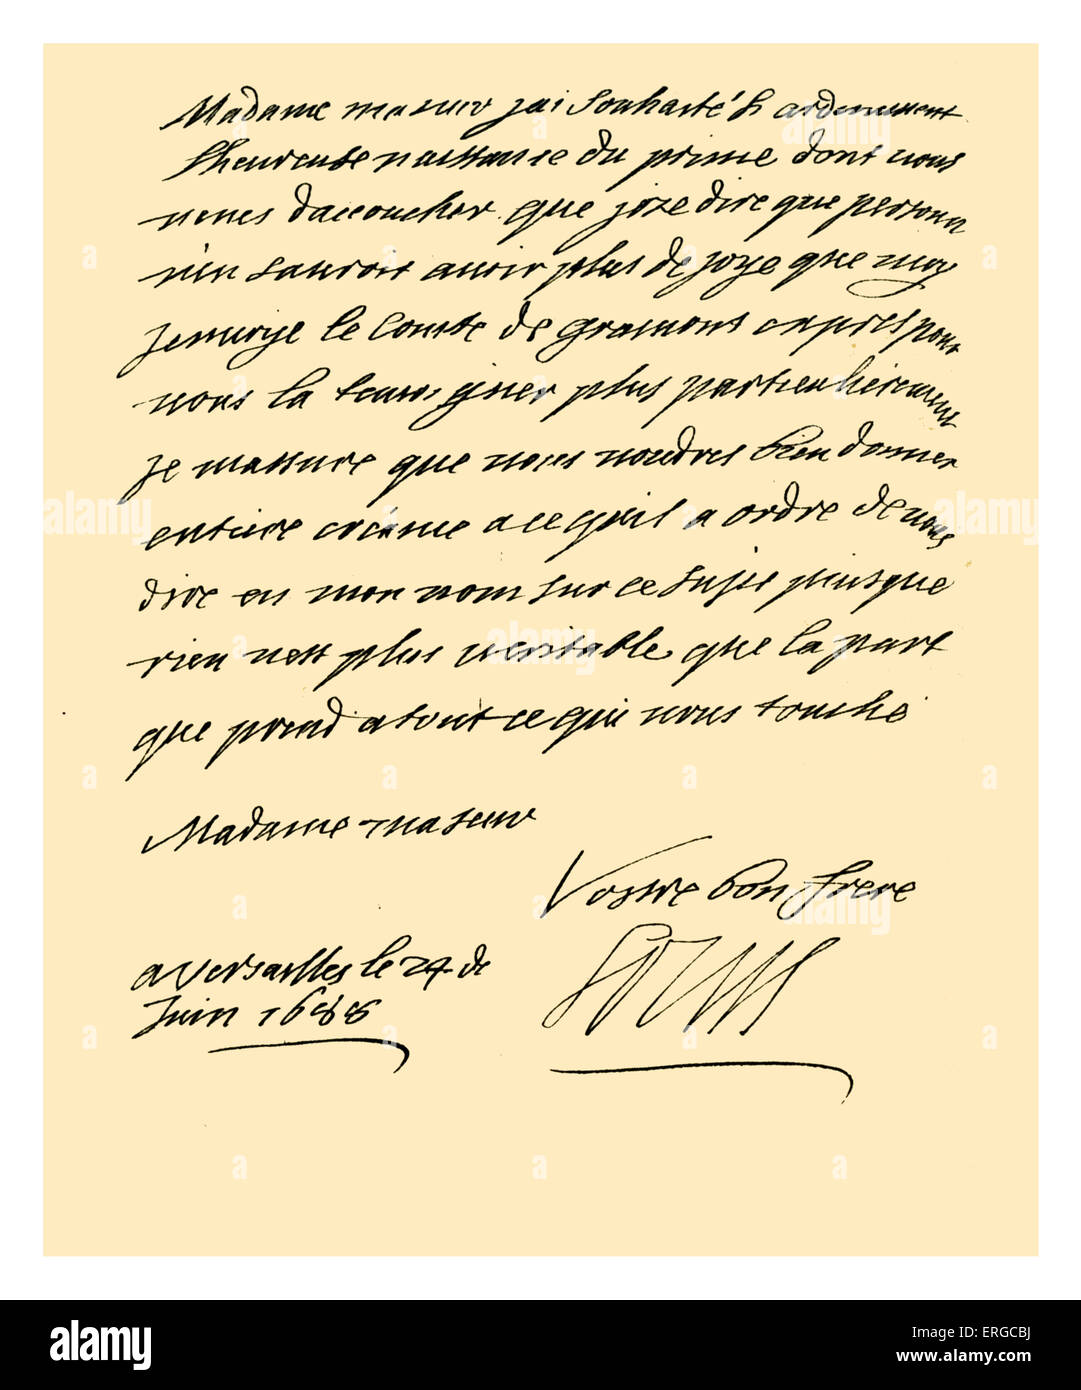 Madame ma seur jai souhaité si ardemment
lheureuse naissance du prince dont vous
venes daccoucher que jose dire que personne
nen sauroit avoir plus de joye que moy
jenvoye le Comte de gramont expres pour
vous la tesmoigner plus particulierement
je massure que vous voudres bien donner
entiere creance a ce quil a ordre de vous
dire en mon nom sur ce sujet puisque
rien nest plus veritable que la part
que prend a tout ce qui vous touche
Madame ma seur
Vostre bon frere
Louis
a Versailles le 24 de
Juin 1688
alamy
ERGCBJ
www.alamy.com